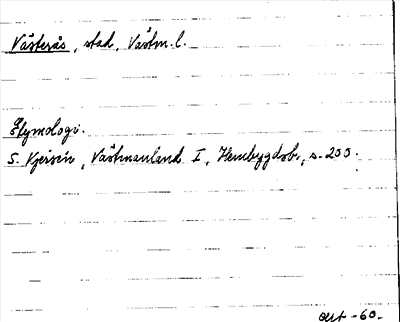 Västerås, stad, Västm. l.
Etymologi.
S. Kjersén, Västmanland I, Hembygdsb., s. 200.
okt -60-